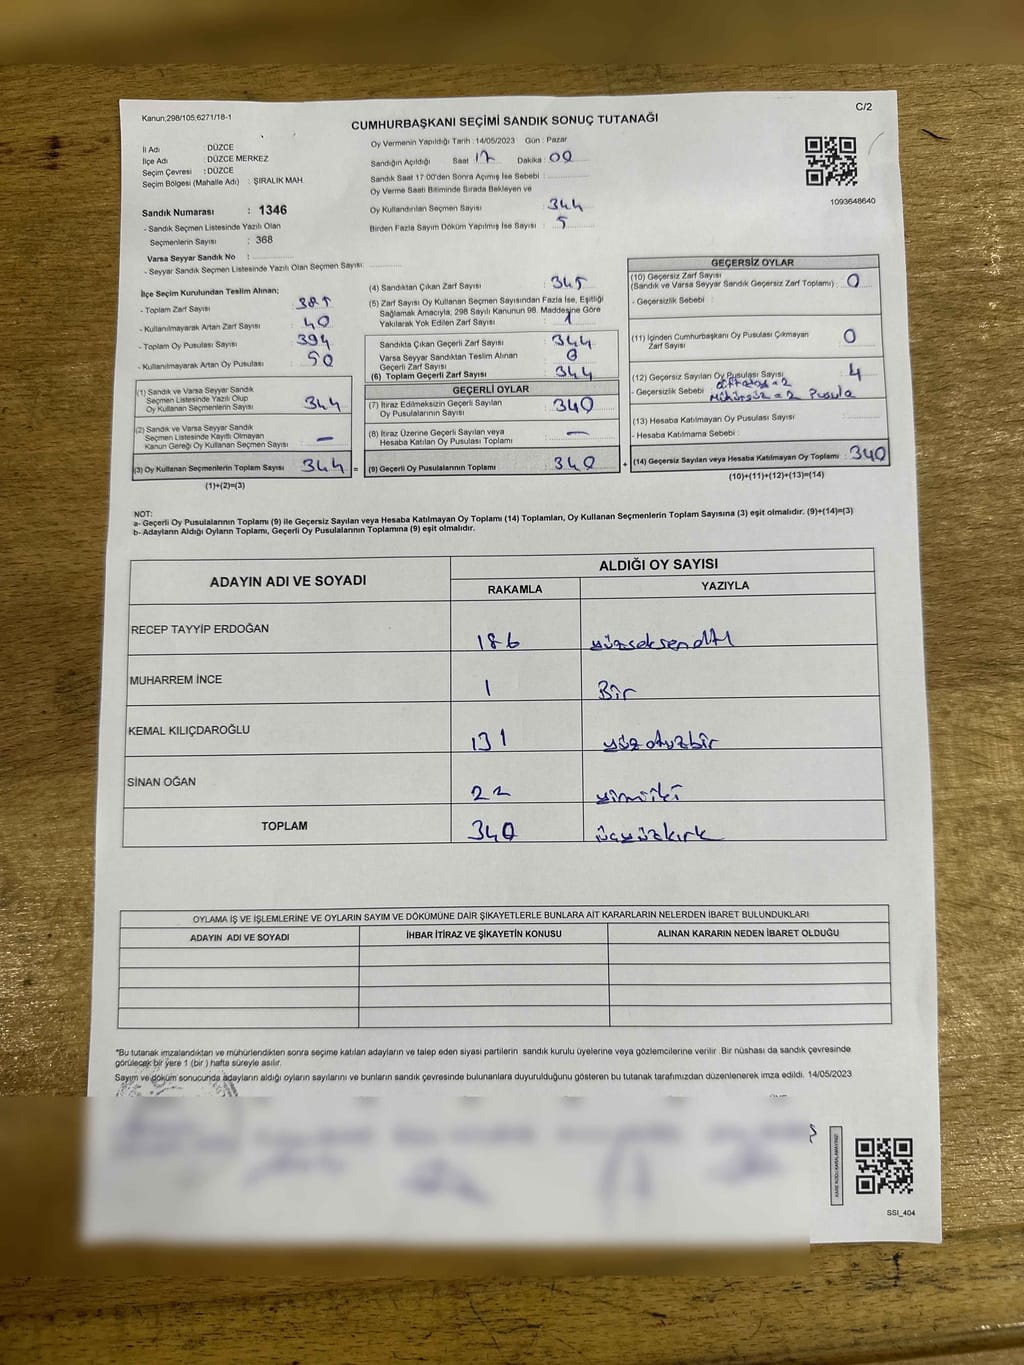 Kanun;298/105,6271/18-1
C/2
CUMHURBAŞKANI SEÇİMİ SANDIK SONUÇ TUTANAĞI
İl Adı : DÜZCE
İlçe Adı : DÜZCE MERKEZ
Seçim Çevresi : DÜZCE
Seçim Bölgesi (Mahalle Adı) : ŞIRALIK MAH.
Sandık Numarası : 1346
- Sandık Seçmen Listesinde Yazılı Olan
Seçmenlerin Sayısı : 368
Varsa Seyyar Sandık No :
- Seyyar Sandık Seçmen Listesinde Yazılı Olan Seçmen Sayısı:
Oy Vermenin Yapıldığı Tarih : 14/05/2023 Gün : Pazar
Sandığın Açıldığı Saat 17 Dakika : 00
Sandık Saat 17:00'den Sonra Açımış İse Sebebi :
Oy Verme Saati Bitiminde Sırada Bekleyen ve
Oy Kullandırılan Seçmen Sayısı : 344
Birden Fazla Sayım Döküm Yapılmış İse Sayısı : 5
1093648640
İlçe Seçim Kurulundan Teslim Alınan;
- Toplam Zarf Sayısı : 385
- Kullanılmayarak Artan Zarf Sayısı : 40
- Toplam Oy Pusulası Sayısı : 394
- Kullanılmayarak Artan Oy Pusulası : 50
(1) Sandık ve Varsa Seyyar Sandık
Seçmen Listesinde Yazılı Olup
Oy Kullanan Seçmenlerin Sayısı : 344
(2) Sandık ve Varsa Seyyar Sandık
Seçmen Listesinde Kayıtlı Olmayan
Kanun Gereği Oy Kullanan Seçmen Sayısı : –
(3) Oy Kullanan Seçmenlerin Toplam Sayısı : 344 =
(1)+(2)=(3)
(4) Sandıktan Çıkan Zarf Sayısı : 345
(5) Zarf Sayısı Oy Kullanan Seçmen Sayısından Fazla İse, Eşitliği
Sağlamak Amacıyla; 298 Sayılı Kanunun 98. Maddesine Göre
Yakılarak Yok Edilen Zarf Sayısı : 1
Sandıkta Çıkan Geçerli Zarf Sayısı : 344
Varsa Seyyar Sandıktan Teslim Alınan
Geçerli Zarf Sayısı : 0
(6) Toplam Geçerli Zarf Sayısı : 344
GEÇERLİ OYLAR
(7) İtiraz Edilmeksizin Geçerli Sayılan
Oy Pusulalarının Sayısı : 340
(8) İtiraz Üzerine Geçerli Sayılan veya
Hesaba Katılan Oy Pusulası Toplamı : –
(9) Geçerli Oy Pusulalarının Toplamı : 340 +
GEÇERSİZ OYLAR
(10) Geçersiz Zarf Sayısı
(Sandık ve Varsa Seyyar Sandık Geçersiz Zarf Toplamı) : 0
- Geçersizlik Sebebi :
(11) İçinden Cumhurbaşkanı Oy Pusulası Çıkmayan
Zarf Sayısı : 0
(12) Geçersiz Sayılan Oy Pusulası Sayısı : 4
- Geçersizlik Sebebi : = 2
Mühürsüz = 2 Pusula
(13) Hesaba Katılmayan Oy Pusulası Sayısı :
- Hesaba Katılmama Sebebi :
(14) Geçersiz Sayılan veya Hesaba Katılmayan Oy Toplamı : 340
(10)+(11)+(12)+(13)=(14)
NOT:
a- Geçerli Oy Pusulalarının Toplamı (9) ile Geçersiz Sayılan veya Hesaba Katılmayan Oy Toplamı (14) Toplamları, Oy Kullanan Seçmenlerin Toplam Sayısına (3) eşit olmalıdır. (9)+(14)=(3)
b- Adayların Aldığı Oyların Toplamı, Geçerli Oy Pusulalarının Toplamına (9) eşit olmalıdır.
ADAYIN ADI VE SOYADI
ALDIĞI OY SAYISI
RAKAMLA YAZIYLA
RECEP TAYYİP ERDOĞAN 186 yüzseksenaltı
MUHARREM İNCE 1 Bir
KEMAL KILIÇDAROĞLU 131 yüzotuzbir
SİNAN OĞAN 22 yirmiiki
TOPLAM 340 üçyüzkırk
OYLAMA İŞ VE İŞLEMLERİNE VE OYLARIN SAYIM VE DÖKÜMÜNE DAİR ŞİKAYETLERLE BUNLARA AİT KARARLARIN NELERDEN İBARET BULUNDUKLARI
ADAYIN ADI VE SOYADI İHBAR İTİRAZ VE ŞİKAYETİN KONUSU ALINAN KARARIN NEDEN İBARET OLDUĞU
*Bu tutanak imzalandıktan ve mühürlendikten sonra seçime katılan adayların ve talep eden siyasi partilerin sandık kurulu üyelerine veya gözlemcilerine verilir. Bir nüshası da sandık çevresinde
görülecek bir yere 1 (bir ) hafta süreyle asılır.
Sayım ve döküm sonucunda adayların aldığı oyların sayılarını ve bunların sandık çevresinde bulunanlara duyurulduğunu gösteren bu tutanak tarafımızdan düzenlenerek imza edildi. 14/05/2023
SSI_404